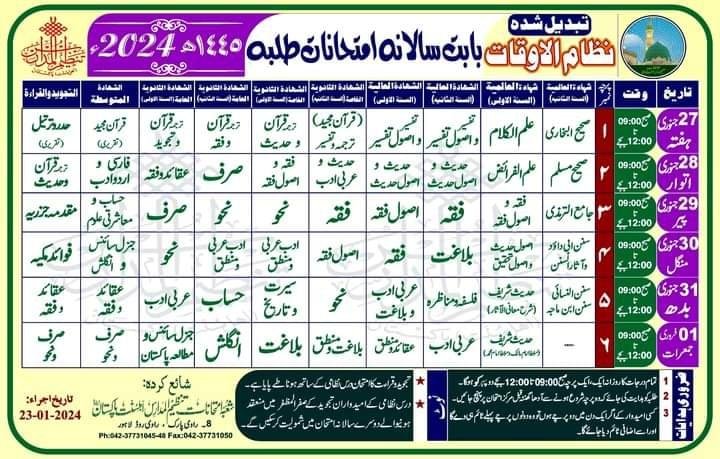 تبدیل شدہ
نظام الاوقات بابت سالانہ امتحانات طلبہ ۱٤٤٥ھ 2024ء
تاریخ | وقت | پرچہ نمبر | شہادۃ العالمیۃ (السنۃ الثانیۃ) | شہادۃ العالمیۃ (السنۃ الاولیٰ) | الشہادۃ العالیۃ (السنۃ الثانیۃ) | الشہادۃ العالیۃ (السنۃ الاولیٰ) | الشہادۃ الثانویۃ الخاصۃ (السنۃ الثانیۃ) | الشہادۃ الثانویۃ الخاصۃ (السنۃ الاولیٰ) | الشہادۃ الثانویۃ العامۃ (السنۃ الثانیۃ) | الشہادۃ الثانویۃ العامۃ (السنۃ الاولیٰ) | الشہادۃ المتوسطۃ | التجوید والقراءۃ
27 جنوری ہفتہ | صبح 09:00 تا 12:00 بجے | ۱ | صحیح البخاری | علم الکلام | تفسیر و اصول تفسیر | تفسیر و اصول تفسیر | (قرآن مجید) ترجمہ و تفسیر | ترجمہ قرآن و حدیث | ترجمہ قرآن و فقہ | قرآن و تجوید | قرآن مجید (تقریری) | حدر و ترتیل (تقریری)
28 جنوری اتوار | صبح 09:00 تا 12:00 بجے | ۲ | صحیح مسلم | علم الفرائض | حدیث و اصول حدیث | حدیث و اصول حدیث | حدیث و عربی ادب | فقہ و اصول فقہ | صرف | عقائد و فقہ | فارسی و اردو ادب | ترجمہ قرآن و حدیث
29 جنوری پیر | صبح 09:00 تا 12:00 بجے | ۳ | جامع الترمذی | فقہ و اصول فقہ | فقہ | فقہ | فقہ | نحو | نحو | صرف | حساب و معاشرتی علوم | مقدمہ جزریہ
30 جنوری منگل | صبح 09:00 تا 12:00 بجے | ۴ | سنن ابی داؤد و آثار السنن | اصول حدیث و اصول تحقیق | بلاغت | اصول فقہ | اصول فقہ | ادب عربی و منطق | ادب عربی و منطق | نحو | جنرل سائنس و انگلش | فوائد مکیہ
31 جنوری بدھ | صبح 09:00 تا 12:00 بجے | ۵ | سنن النسائی و سنن ابن ماجہ | حدیث شریف (شرح معانی الآثار) | فلسفہ و مناظرہ | عربی ادب و بلاغت | نحو | سیرت و تاریخ | حساب | عربی ادب | عقائد و فقہ | عقائد و فقہ
01 فروری جمعرات | صبح 09:00 تا 12:00 بجے | ۶ | ---- | حدیث شریف | عربی ادب | عقائد و منطق | بلاغت و منطق | بلاغت | انگلش | جنرل سائنس و مطالعہ پاکستان | صرف و نحو | صرف و نحو
ضروری ہدایات
1 تمام درجات کا روزانہ ایک، ایک پرچہ صبح 09:00 تا 12:00 بجے دوپہر ہوگا۔
2 طلبہ کو ہدایت کی جائے کہ وہ پرچہ شروع ہونے سے آدھا گھنٹہ قبل مرکز امتحان پر پہنچ جائیں۔
3 کسی امیدوار کے اگر ایک دن میں دو پرچے ہوں تو وہ دونوں پرچے پہلے ٹائم ہی دے گا اور اسے اضافی ٹائم دیا جائے گا۔
نوٹ
★ تجوید و قراءت کا امتحان درس نظامی کے ساتھ ہونا طے پایا ہے۔
★ درس نظامی کے امیدواران تجوید کے صفر المظفر میں منعقد ہونیوالے دوسرے سالانہ امتحان میں شمولیت کر سکیں گے۔
شائع کردہ:
شعبہ امتحانات تنظیم المدارس اہلسنت پاکستان
8۔ راوی پارک، راوی روڈ لاہور
Ph:042-37731045-48 Fax:042-37731050
تاریخ اجراء:
23-01-2024